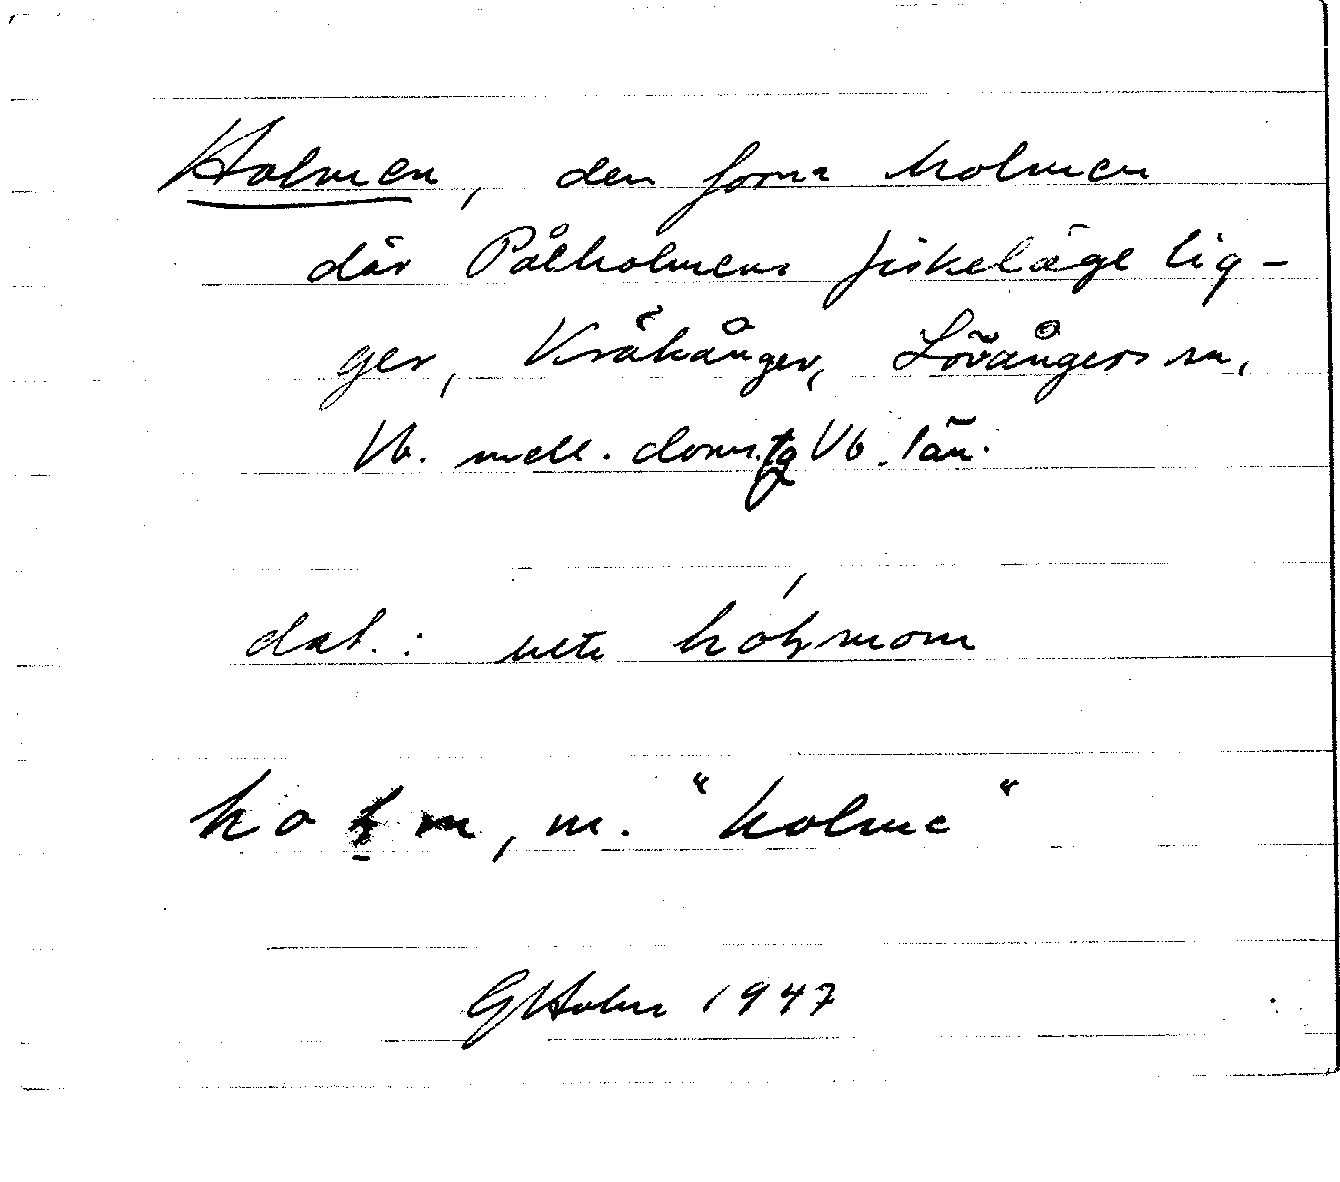 Holmen, den forna holmen
där Pålholmens fiskeläge lig-
ger, Kråkånger, Lövångers sn,
Vb. mell. doms.tg Vb. län.
dat.: ute hołmom
hołm, m. "holme"
GHolm 1947